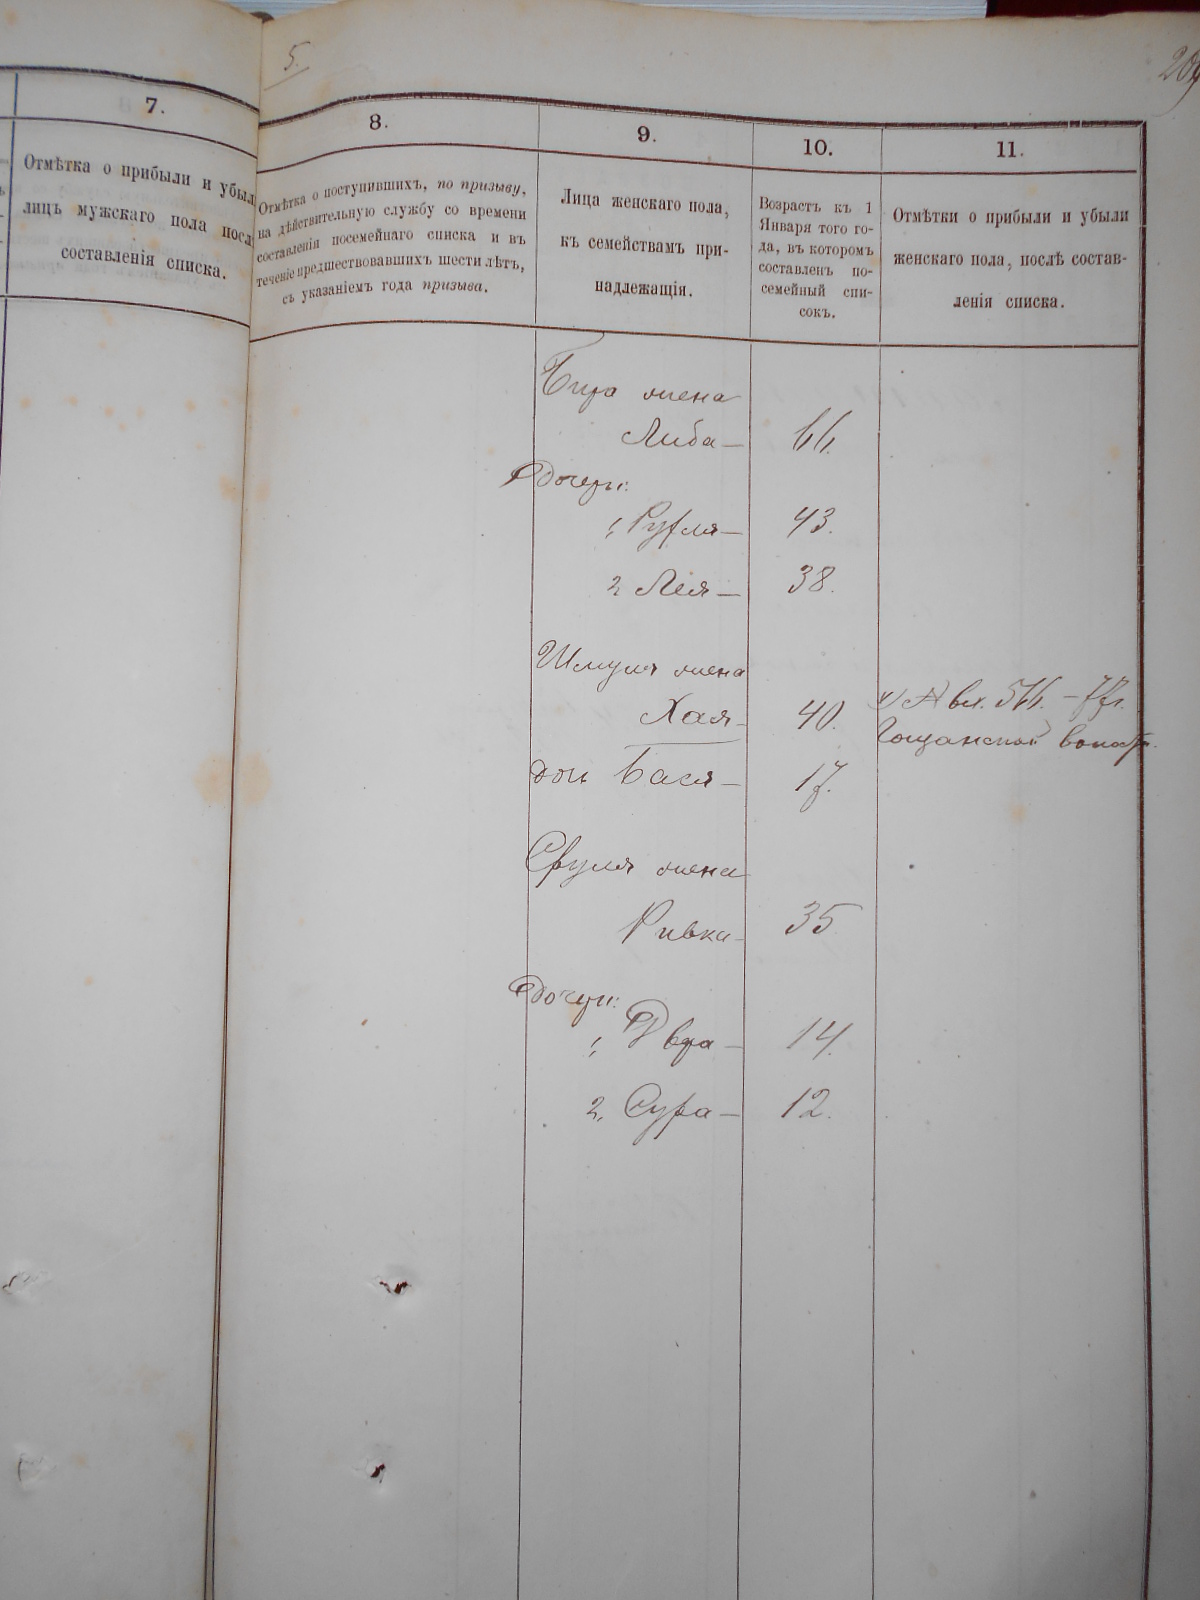 5.
209
7.
Отмѣтка о прибыли и убыл
лицъ мужскаго пола посл
составленія списка.
8.
Отмѣтка о поступившихъ, по призыву,
на дѣйствительную службу со времени
составленія посемейнаго списка и въ
теченіе предшествовавшихъ шести лѣтъ,
съ указаніемъ года призыва.
9.
Лица женскаго пола,
къ семействамъ при-
надлежащія.
10.
Возрастъ къ 1
Января того го-
да, въ которомъ
составленъ по-
семейный спи-
сокъ.
11.
Отмѣтки о прибыли и убыли
женскаго пола, послѣ состав-
ленія списка.
жена
Либа — 66.
Дочери:
1, Руфля — 43.
2 Лея — 38.
Шмуля жена
Хая — 40.
Гощанской волост.
дочь Бася — 17.
Сруля жена
Ривка — 35
Дочери:
1, Двра — 14.
2, Сура — 12.